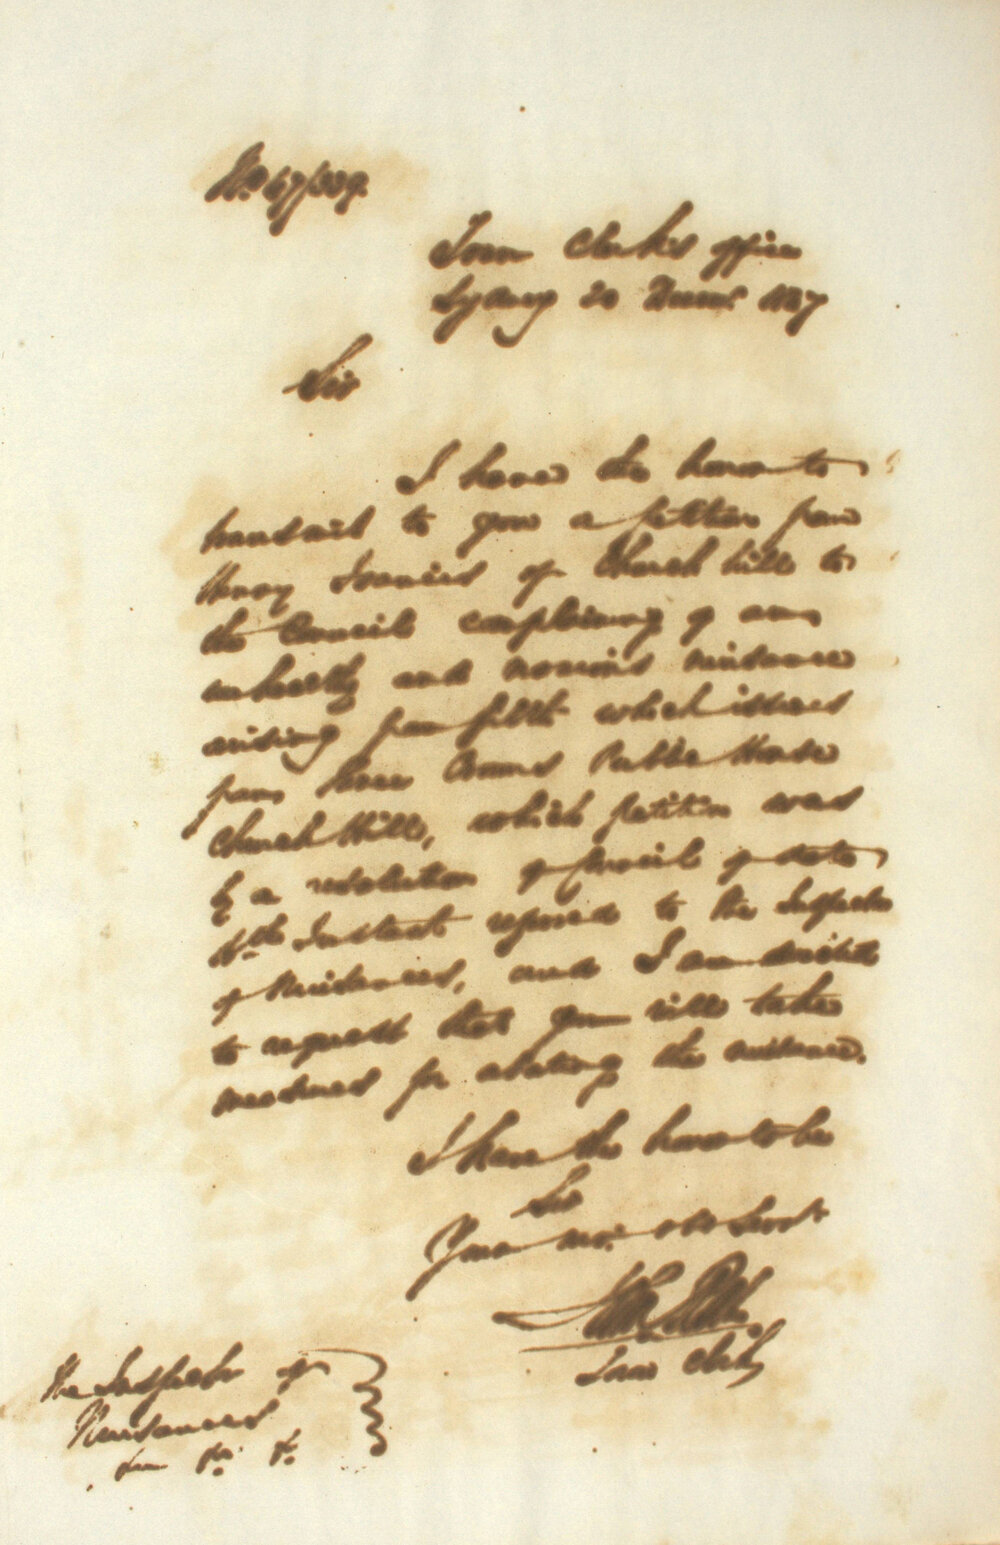 No. 57/339.
Town Clerk's Office
Sydney 20 1857
Sir
I have the honor to
transmit to you a petition from
Henry Francies of Church hill to
the Council complaining of an
unhealthy and noxious nuisance
arising from filth which issues
from three Crowns Public House
Church Hill, which petition was
by a resolution of Council of date
Instant referred to the Inspector
of Nuisances, and I am directed
to request that you will take
measures for abating the nuisance.
I have the honor to be
Sir
Your mo: obt Servt
Town Clerk
The Inspector of
Nuisances